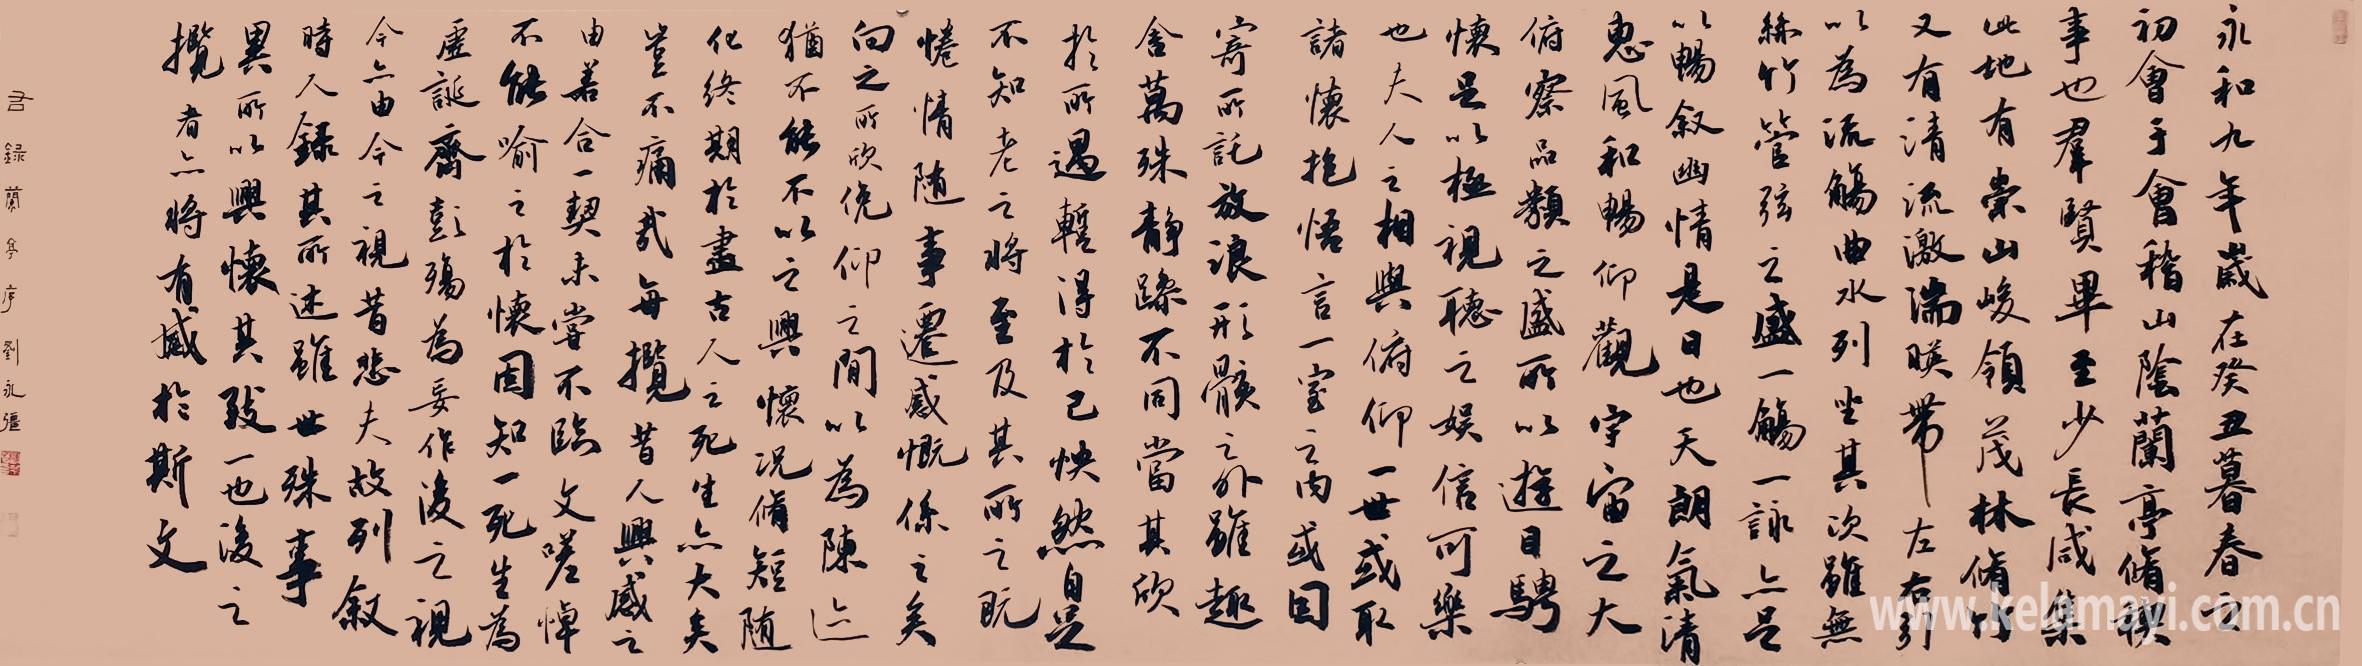 永和九年歲在癸丑暮春之
初會于會稽山陰蘭亭脩禊
事也羣賢畢至少長咸集
此地有崇山峻領茂林脩竹
又有清流激湍暎帶左右引
以為流觴曲水列坐其次雖無
絲竹管弦之盛一觴一詠亦足
以暢叙幽情是日也天朗氣清
惠風和暢仰觀宇宙之大
俯察品類之盛所以遊目騁
懷足以極視聽之娛信可樂
也夫人之相與俯仰一世或取
諸懷抱悟言一室之内或因
寄所託放浪形骸之外雖趣
舍萬殊静躁不同當其欣
於所遇暫得於己怏然自足
不知老之將至及其所之既
惓情随事遷感慨係之矣
向之所欣俛仰之間以為陳迹
猶不能不以之興懷况脩短随
化終期於盡古人云死生亦大矣
豈不痛哉每攬昔人興感之
由若合一契未嘗不臨文嗟悼
不能喻之於懷固知一死生為
虛誕齊彭殤為妄作後之視
今亦由今之視昔悲夫故列叙
時人録其所述雖世殊事
異所以興懷其致一也後之
攬者亦將有感於斯文
右録蘭亭序 劉永疆
www.kelamayi.com.cn